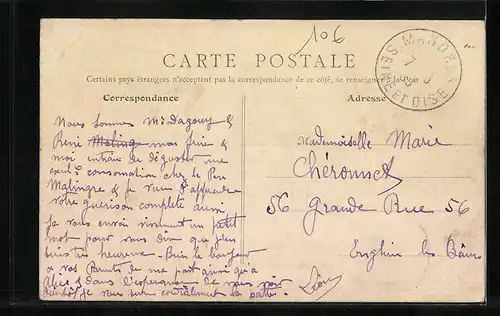 106
CARTE POSTALE
Certains pays étrangers n'acceptant pas la correspondance de ce côté, se renseigner à la Post
Correspondance
Adresse
MANDRES
SEINE ET OISE
Nous sommes Mr Dagouy &
René Malingre mon frère &
moi entrain de déguster une
consomation chez le Père
Malingre & je viens d'apprendre
votre guérison complète aussi
je vous envoi vivement un petit
mot pour vous dire que j'en
suis très heureux. Bien le bonjour
à vos Parents de ma part ainsi qu'à
& dans l'espérance de vous voir
bientôt je vous serre cordialement la patte.
Léon
Mademoiselle Marie
Chéronnet
56 Grande Rue 56
Enghien les Bains